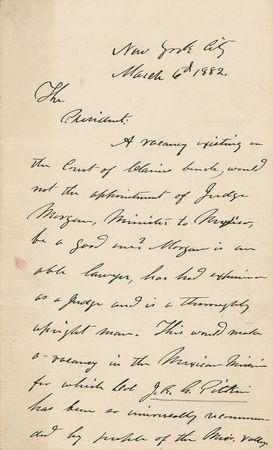 New York City
March 6th 1882.
The
President:
A vacancy existing on
the Court of Claims bench, would
not the appointment of Judge
Morgan, Minister to Mexico,
be a good one? Morgan is an
able lawyer, has had experience
as a Judge and is a thoroughly
upright man. This would make
a vacancy in the Mexican Mission
for which Col. J. R. G. Pitkin
has been so universally recommen-
ded by people of the Miss. valley